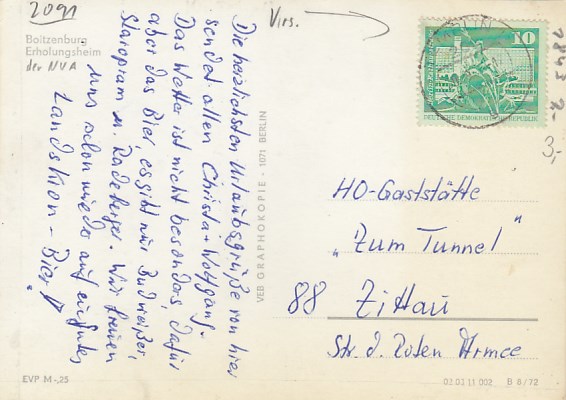 2091
Boitzenburg
Erholungsheim
der NVA
Virs.
Die herzlichsten Urlaubsgrüße von hier
sendet allen Christa + Wolfgang.
Das Wetter ist nicht besonders, dafür
aber das Bier, es gibt nur Budweißer,
Staropram u. Radeberger. Wir freuen
uns schon wieder auf ein gutes
Landskron-Bier!
VEB GRAPHOKOPIE - 1071 BERLIN
EVP M -,25
10
DEUTSCHE DEMOKRATISCHE REPUBLIK
2843 2,-
3,-
HO-Gaststätte
„Zum Tunnel"
88 Zittau
Str. d. Roten Armee
02 01 11 002 B 8/72